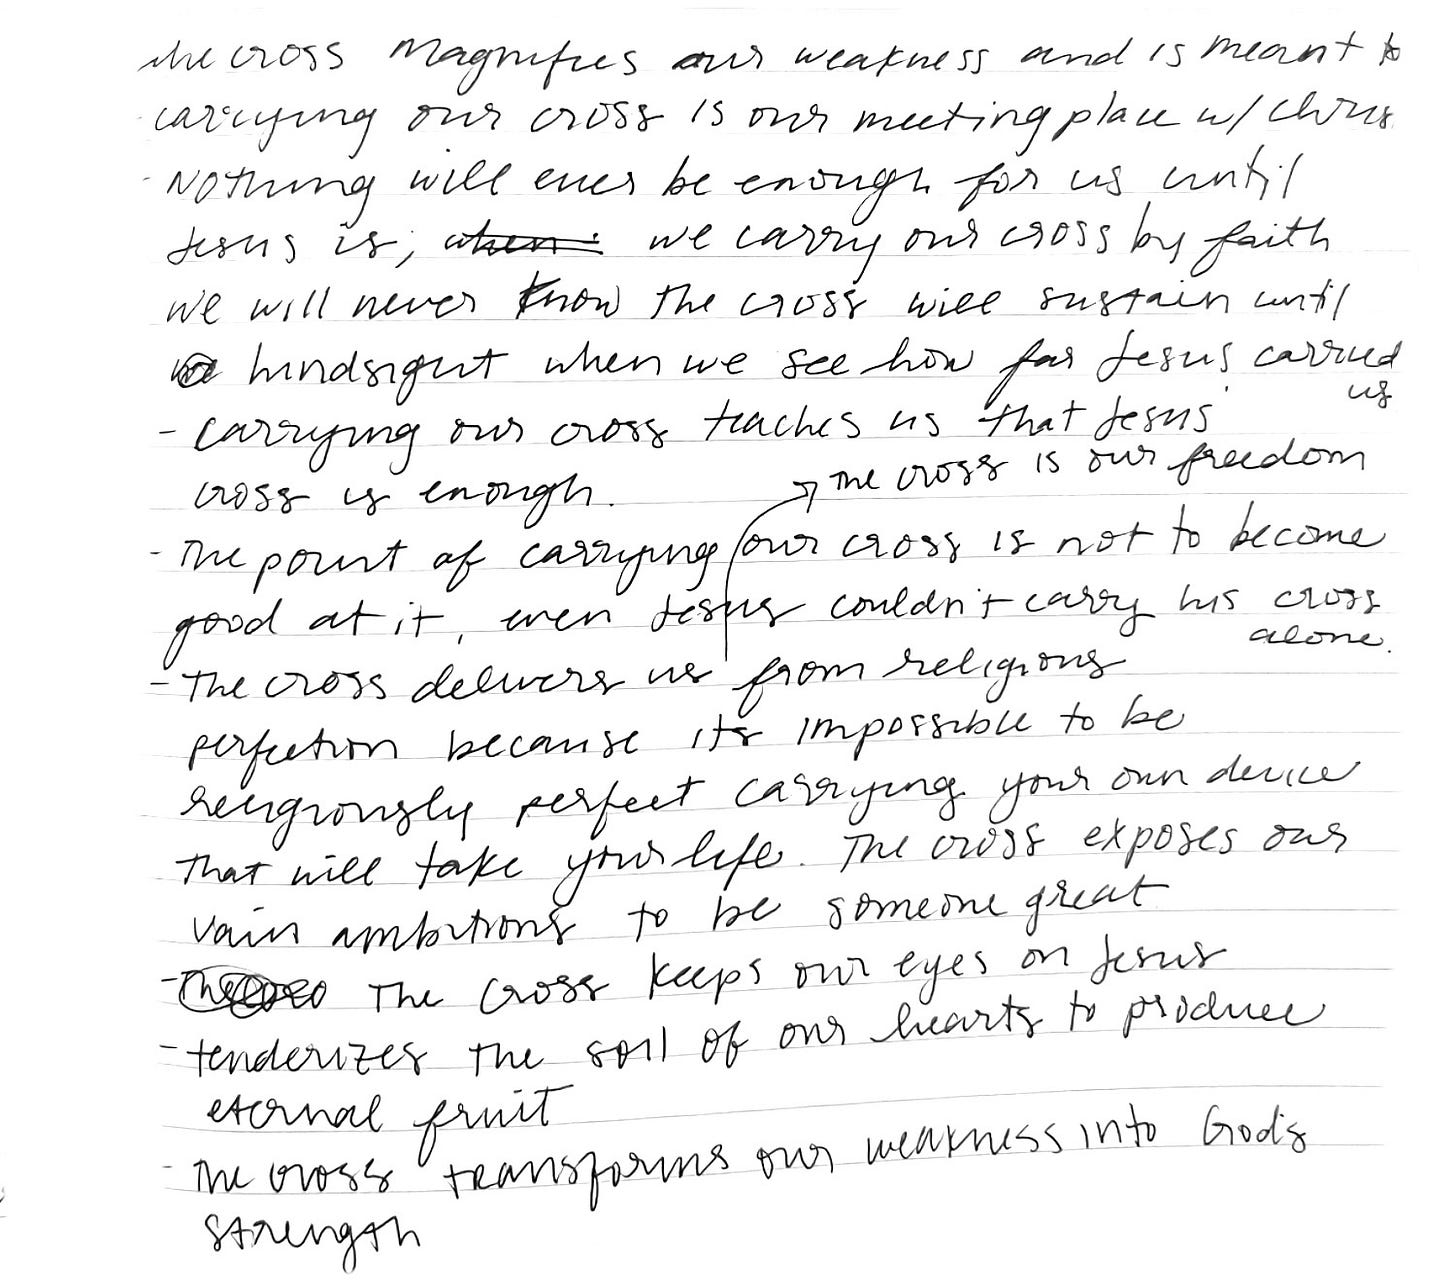 the cross Magnifies our weakness and is meant to
- carrying our cross is our meeting place w/ Chris
- Nothing will ever be enough for us until
Jesus is; when we carry our cross by faith
we will never know the cross will sustain until
hindsight when we see how far Jesus carried
us
- carrying our cross teaches us that Jesus'
cross is enough.
The cross is our freedom
- The point of carrying our cross is not to become
good at it, even Jesus couldn't carry his cross
alone.
- The cross delivers us from religious
perfection because its impossible to be
religiously perfect carrying your own device
that will take your life. The cross exposes our
vain ambitions to be someone great
- The cross keeps our eyes on Jesus
- tenderizes the soil of our hearts to produce
eternal fruit
- The cross transforms our weakness into God's
strength